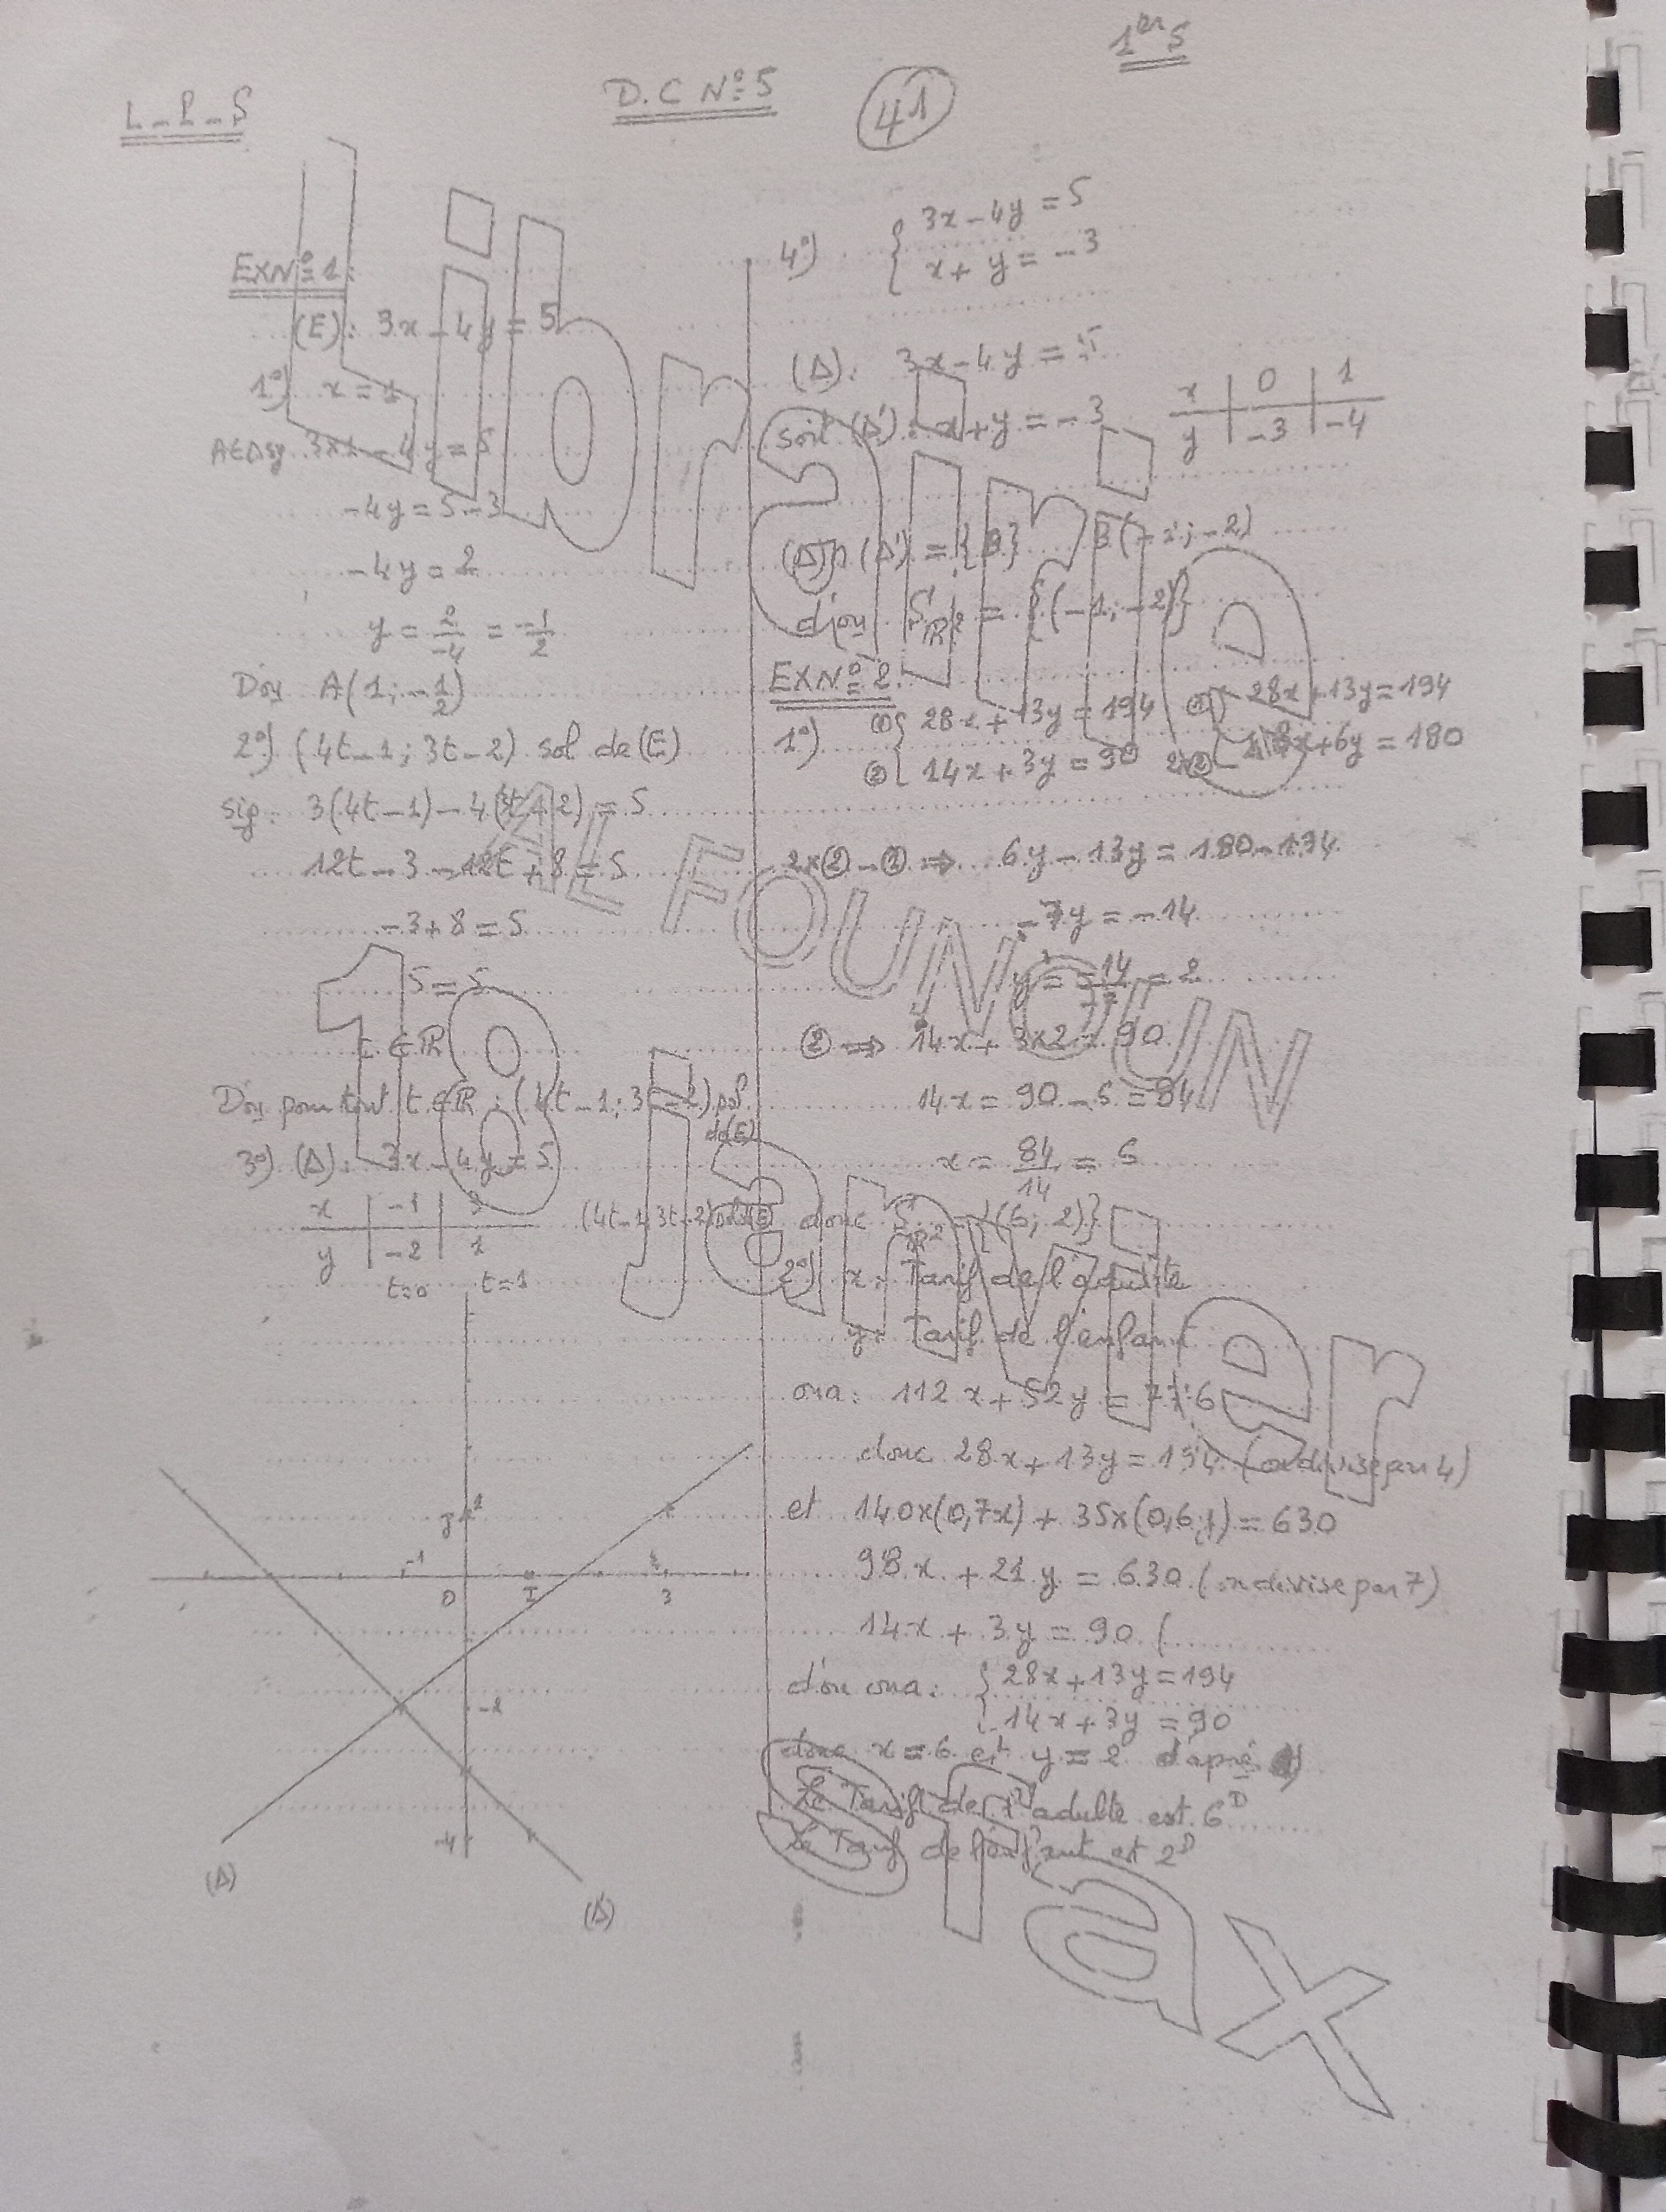 1er S
L-P-S
D.C N°5
41
EXN°1:
(E): 3x-4y=5
1°) x=1
A∈Δ sig 3x1-4y=5
-4y=5-3
-4y=2
y=2/-4=-1/2
D'où A(1;-1/2)
2°) (4t-1;3t-2) sol de (E)
sig: 3(4t-1)-4(3t-2)=5
12t-3-12t+8=5
-3+8=5
5=5
t∈IR
D'où pour tout t∈IR: (4t-1;3t-2) sol
de(E)
3°) (Δ): 3x-4y=5
x | -1 | 3
y | -2 | 1
t=0 t=1
(4t-1;3t-2) sol(E)
2
J
-1
0
I
3
-2
-4
(Δ)
(Δ')
4°) { 3x-4y=5
x+y=-3
(Δ): 3x-4y=5
soit (Δ'): x+y=-3
x | 0 | 1
y | -3 | -4
(Δ)∩(Δ')={B} B(-1;-2)
d'où S IR²={(-1;-2)}
EXN°2
1°) ① { 28x+13y=194 ① { 28x+13y=194
② 14x+3y=90 2x② 28x+6y=180
2x②-① ⇒ 6y-13y=180-194
-7y=-14
y=-14/-7=2
② ⇒ 14x+3x2=90
14x=90-6=84
x=84/14=6
donc S IR²={(6;2)}
2°) x: Tarif de l'adulte
y: Tarif de l'enfant
ona: 112x+52y=776
donc 28x+13y=194 (on divise par 4)
et 140x(0,7x)+35x(0,6y)=630
98x+21y=630 (on divise par 7)
14x+3y=90 (
d'où ona: { 28x+13y=194
14x+3y=90
donc x=6 et y=2 d'après 1)
Le Tarif de l'adulte est 6D
Le Tarif de l'enfant est 2D
Librairie
AL FOUNOUN
18 janvier
Sfax